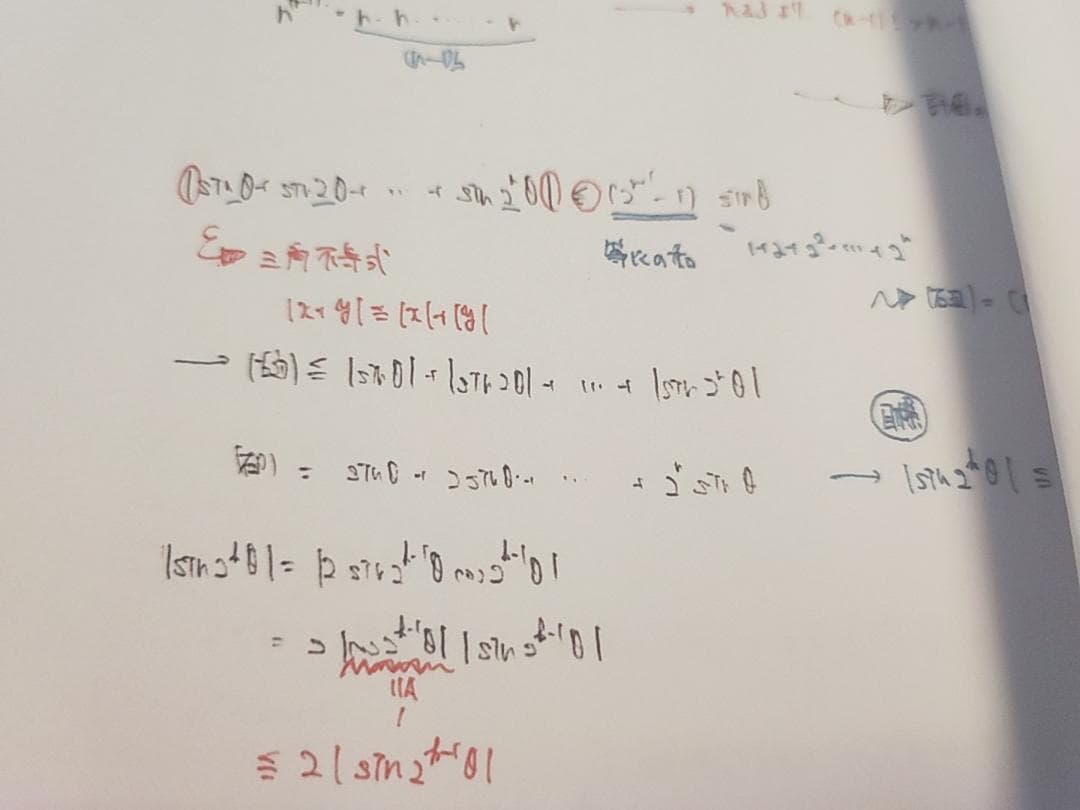 n · n · ····· · n
|sinθ + sin2θ + ‥ + sin2ⁿθ| ≦ (2ⁿ⁺¹ - 1) sinθ
三角不等式
等比の和
1+2+2²+…+2ⁿ
|x+y| ≦ |x|+|y|
→ (左辺) ≦ |sinθ| + |sin2θ| + … + |sin2ⁿθ|
目標
(右辺) = sinθ + 2sinθ + … + 2ⁿ sinθ
→ |sin2ᵏθ| ≦
|sin2ᵏθ| = |2 sin2ᵏ⁻¹θ cos2ᵏ⁻¹θ|
= 2 |cos2ᵏ⁻¹θ| |sin2ᵏ⁻¹θ|
1
≦ 2 | sin2ᵏ⁻¹θ|